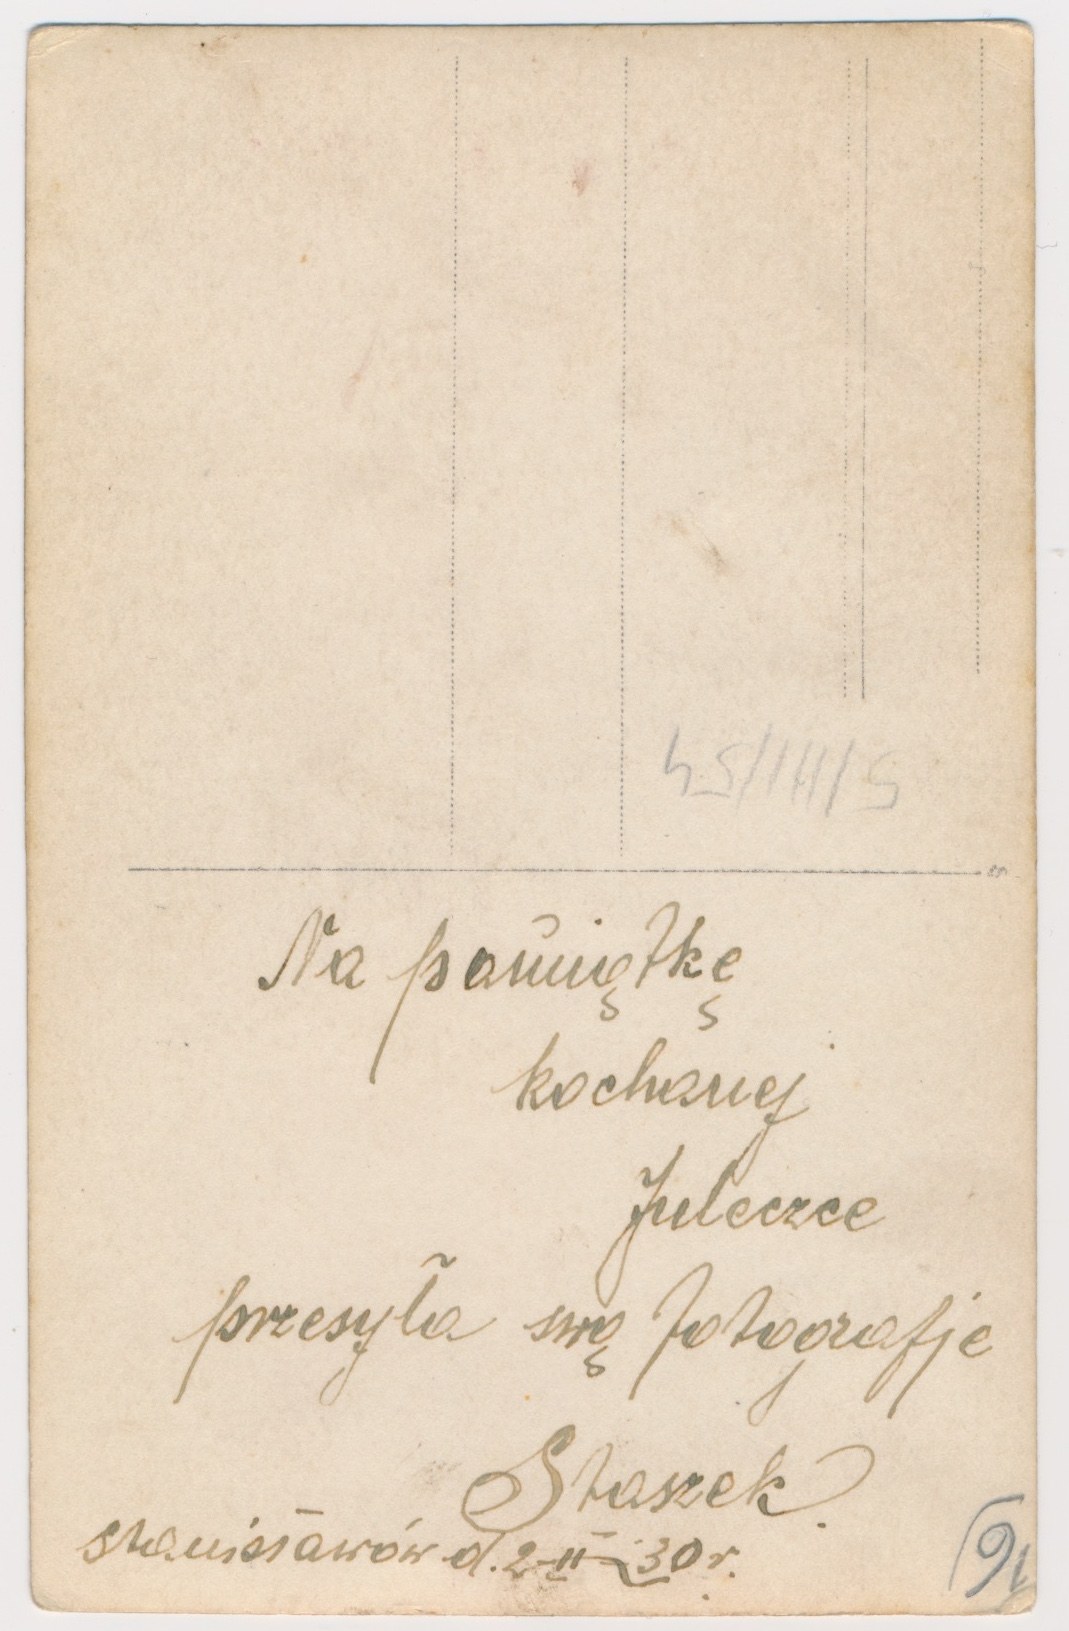 Na pamiątkę
kochanej
Juleczce
przesyła swą fotografje
Staszek
Stanisławów d. 2-II-30 r.